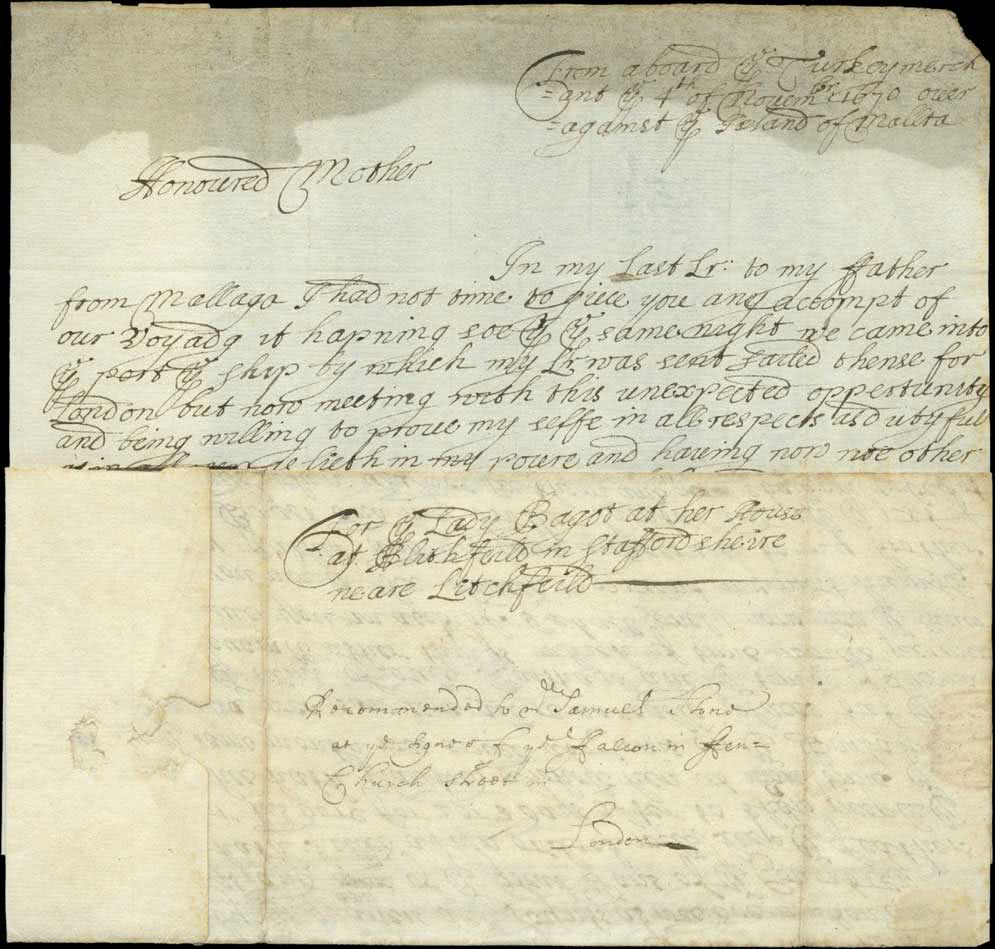 From aboard ye Turkeymerch
=ant ye 4th of Novembr 1670 over
=against ye Island of Mallta
Honoured Mother
In my Last Lr: to my ffather
from Mallaga I had not time to give you any accompt of
our Voyadg it hapning soe yt ye same night we came into
ye port ye ship by which my Lr: was sent sailed thense for
London but now meeting with this unexpected oppertunity
and being willing to prove my selfe in all respects as dutyfull
lieth in my powre and having now noe other
For ye Lady Bagot at her House
at Blithfeild in Staffordsheire
neare Litchfeild
Recommended to mr Samuell Stone
at ye signe of ye ffalcon in ffen=
Church street in
London